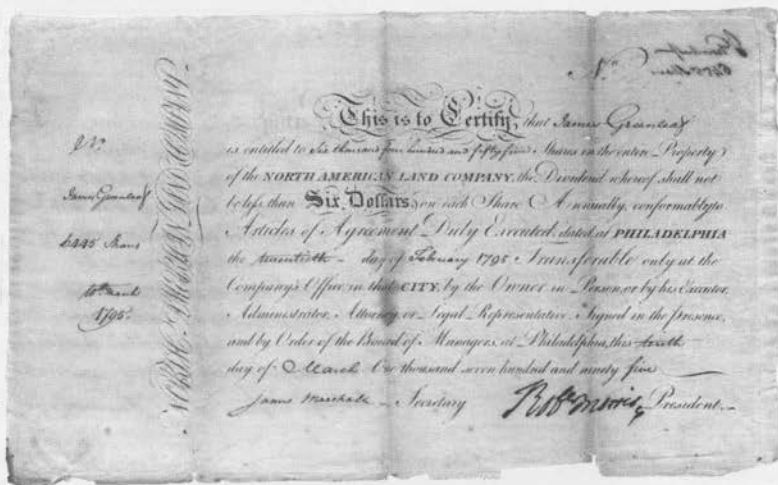 No.
This is to Certify, that James Greenleaf
is entitled to six thousand four hundred and fifty five Shares in the entire Property
of the NORTH AMERICAN LAND COMPANY, the Dividend whereof shall not
be less than Six Dollars, on each Share Annually, conformably to
Articles of Agreement Duly Executed, dated at PHILADELPHIA
the twentieth day of February 1795 Transferable only at the
Company's Office in that CITY, by the Owner in Person, or by his Executor,
Administrator, Attorney, or Legal Representative. Signed in the presence,
and by Order of the Board of Managers, at Philadelphia, this
day of March One thousand seven hundred and ninety five
James Marshall Secretary Robt Morris, President.
No.
James Greenleaf
Shares
March
1795.
NORTH AMERICAN LAND COMPANY.